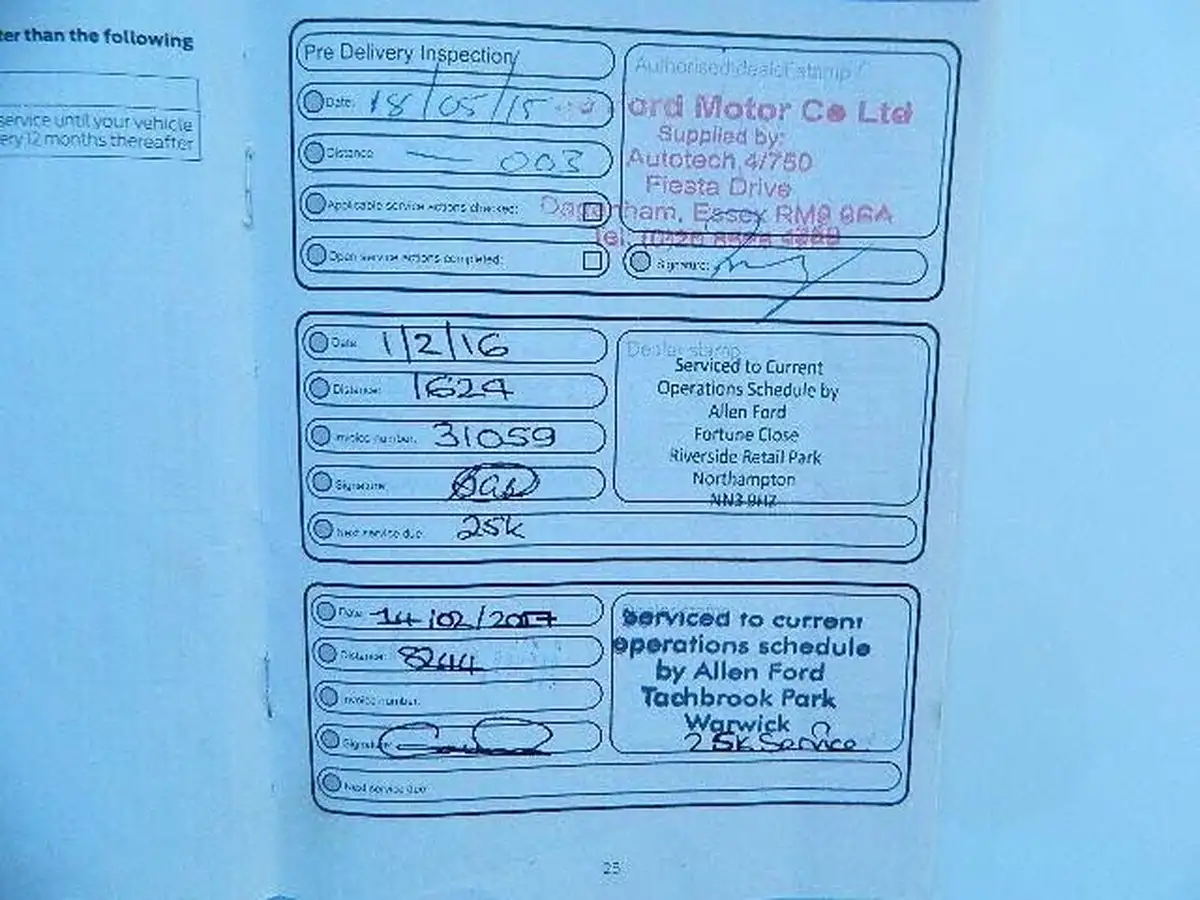 ter than the following
service until your vehicle
ery 12 months thereafter
Pre Delivery Inspection
Authorised dealer stamp
Date: 18/05/15
ord Motor Co Ltd
Supplied by:
Distance 003
Autotech 4/750
Fiesta Drive
Applicable service actions checked:
Dagenham, Essex RM9 6SA
Open service actions completed:
Signature:
Date: 1/2/16
Dealer stamp
Serviced to Current
Distance: 1624
Operations Schedule by
Allen Ford
Invoice number: 31059
Fortune Close
Riverside Retail Park
Signature:
Northampton
NN3 9HZ
Next service due: 25k
Date: 14/02/2017
Serviced to current
operations schedule
Distance: 8244
by Allen Ford
Invoice number:
Tachbrook Park
Warwick
Signature:
25k Service
Next service due:
25